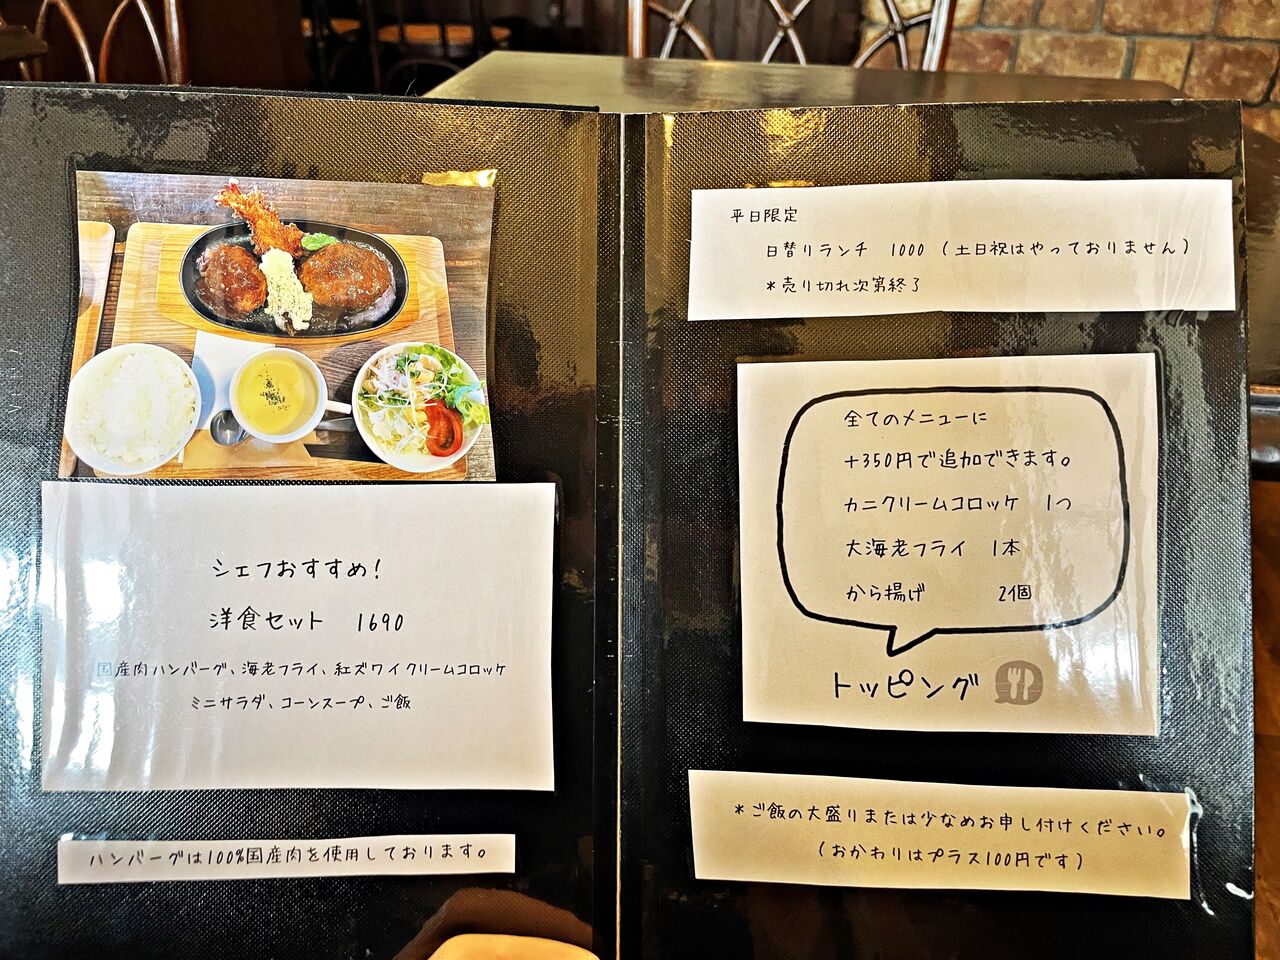 シェフおすすめ!
洋食セット 1690
国産肉ハンバーグ、海老フライ、紅ズワイクリームコロッケ
ミニサラダ、コーンスープ、ご飯
ハンバーグは100%国産肉を使用しております。
平日限定
日替りランチ 1000 (土日祝はやっておりません)
*売り切れ次第終了
全てのメニューに
+350円で追加できます。
カニクリームコロッケ 1つ
大海老フライ 1本
から揚げ 2個
トッピング
*ご飯の大盛りまたは少なめお申し付けください。
(おかわりはプラス100円です)